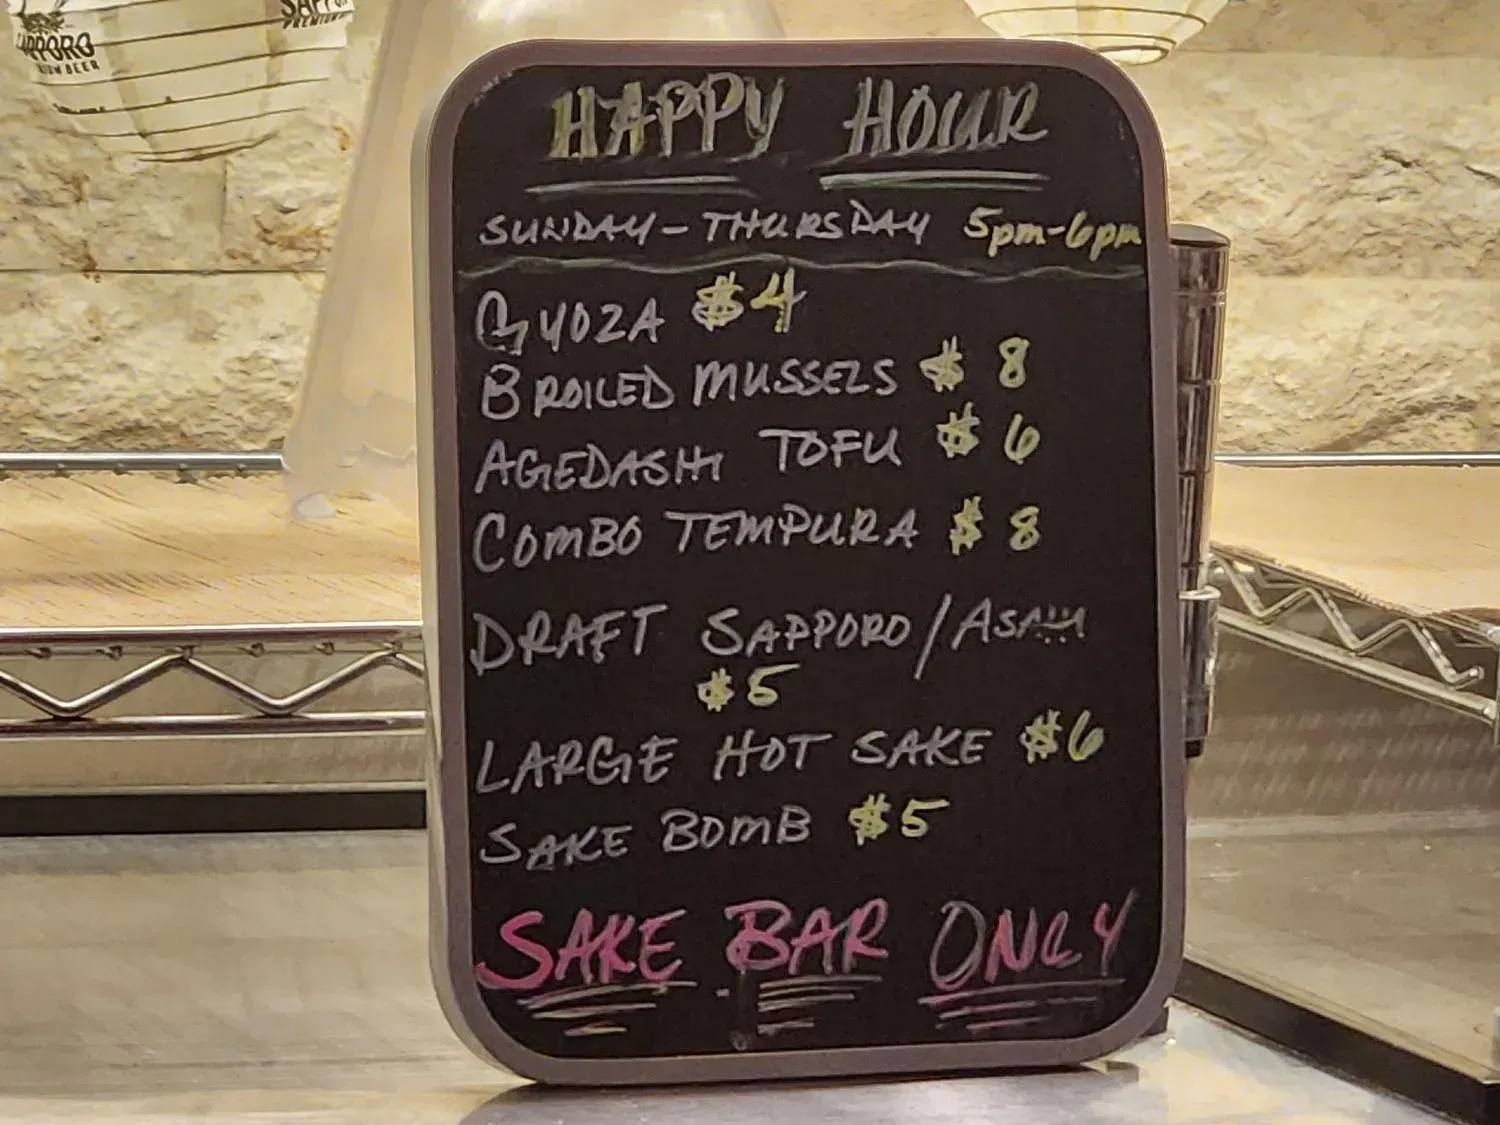 SAPPORO
PREMIUM
SAPPORO
PREMIUM BEER
HAPPY HOUR
SUNDAY - THURSDAY 5pm-6pm
GYOZA $4
BROILED MUSSELS $8
AGEDASHI TOFU $6
COMBO TEMPURA $8
DRAFT SAPPORO / ASAHI
$5
LARGE HOT SAKE $6
SAKE BOMB $5
SAKE BAR ONLY